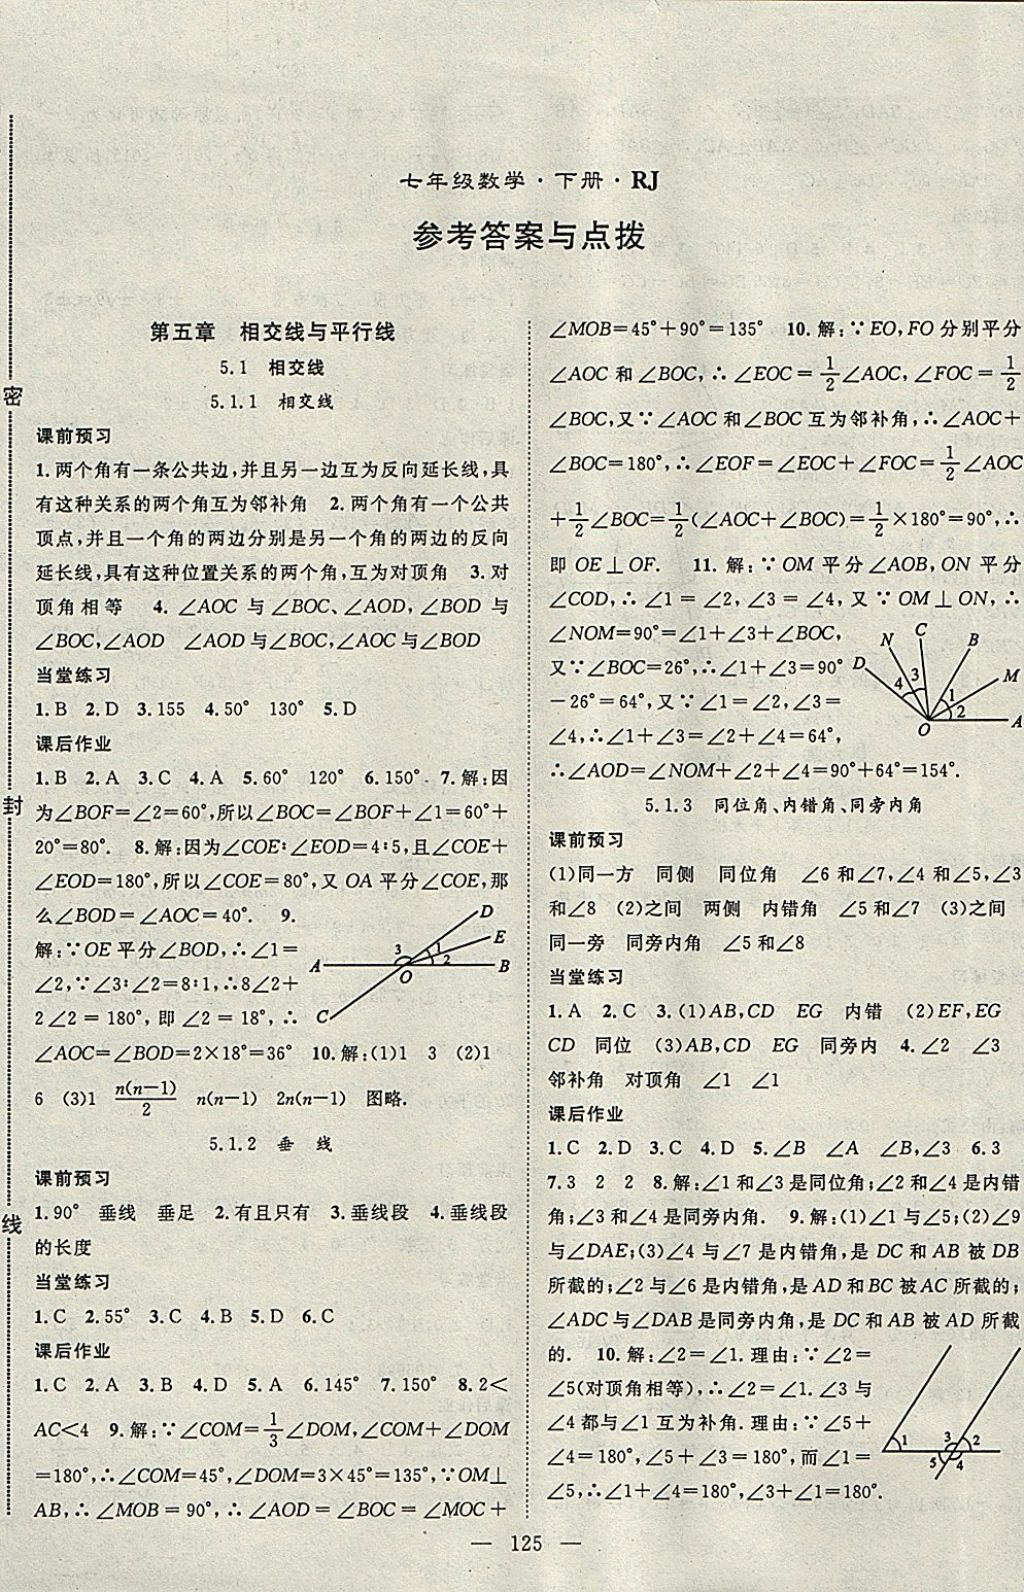 七年级数学·下册·RJ
参考答案与点拨
密
封
线
第五章 相交线与平行线
5.1 相交线
5.1.1 相交线
课前预习
1.两个角有一条公共边,并且另一边互为反向延长线,具
有这种关系的两个角互为邻补角 2.两个角有一个公共
顶点,并且一个角的两边分别是另一个角的两边的反向
延长线,具有这种位置关系的两个角,互为对顶角 3.对
顶角相等 4.∠AOC 与∠BOC、∠AOD,∠BOD 与
∠BOC,∠AOD ∠AOD 与∠BOC,∠AOC 与∠BOD
当堂练习
1.B 2.D 3.155 4.50° 130° 5.D
课后作业
1.B 2.A 3.C 4.A 5.60° 120° 6.150° 7.解:因
为∠BOF=∠2=60°,所以∠BOC=∠BOF+∠1=60°+
20°=80°. 8.解:因为∠COE∶∠EOD=4∶5,且∠COE+
∠EOD=180°,所以∠COE=80°,又 OA 平分∠COE,那
么∠BOD=∠AOC=40°. 9.
解:∵OE 平分∠BOD,∴∠1=
∠2,∵∠3∶∠2=8∶1,∴8∠2+
2∠2=180°,即∠2=18°,∴
∠AOC=∠BOD=2×18°=36° 10.解:(1)1 3 (2)1
6 (3)1 n(n−1)/2 n(n−1) 2n(n−1) 图略.
A B C D E O 1 2 3
5.1.2 垂 线
课前预习
1.90° 垂线 垂足 2.有且只有 3.垂线段 4.垂线段
的长度
当堂练习
1.C 2.55° 3.C 4.B 5.D 6.C
课后作业
1.C 2.A 3.B 4.D 5.A 6.145° 7.150° 8.2<
AC<4 9.解:∵∠COM=1/3∠DOM,∠COM+∠DOM
=180°,∴∠COM=45°,∠DOM=3×45°=135°,∵OM⊥
AB,∴∠MOB=90°,∴∠AOD=∠BOC=∠MOC+
∠MOB=45°+90°=135° 10.解:∵EO,FO 分别平分
∠AOC 和∠BOC,∴∠EOC=1/2∠AOC,∠FOC=1/2
∠BOC,又∵∠AOC 和∠BOC 互为邻补角,∴∠AOC+
∠BOC=180°,∴∠EOF=∠EOC+∠FOC=1/2∠AOC
+1/2∠BOC=1/2(∠AOC+∠BOC)=1/2×180°=90°,∴
即 OE⊥OF. 11.解:∵OM 平分∠AOB,ON 平分
∠COD,∴∠1=∠2,∠3=∠4,又∵OM⊥ON,∴
∠NOM=90°=∠1+∠3+∠BOC,
又∵∠BOC=26°,∴∠1+∠3=90°
−26°=64°,又∵∠1=∠2,∠3=
∠4,∴∠1+∠3=∠2+∠4=64°,
∴∠AOD=∠NOM+∠2+∠4=90°+64°=154°.
D N C B M A O 4 3 1 2
5.1.3 同位角、内错角、同旁内角
课前预习
(1)同一方 同侧 同位角 ∠6 和∠7,∠4 和∠5,∠3
和∠8 (2)之间 两侧 内错角 ∠5 和∠7 (3)之间
同一旁 同旁内角 ∠5 和∠8
当堂练习
1.A 2.C 3.(1)AB,CD EG 内错 (2)EF,EG
CD 同位 (3)AB,CD EG 同旁内 4.∠2 ∠3
邻补角 对顶角 ∠1 ∠1
课后作业
1.C 2.D 3.C 4.D 5.∠B ∠A ∠B,∠3 6.3
7.3 2 2 8.解:∠1 和∠3 是同位角;∠2 和∠4 是内错
角;∠3 和∠4 是同旁内角. 9.解:(1)∠1 与∠5;(2)∠9
与∠DAE;(3)∠4 与∠7 是内错角,是 DC 和 AB 被 DB
所截的;∠2 与∠6 是内错角,是 AD 和 BC 被 AC 所截的;
∠ADC 与∠DAB 是同旁内角,是 DC 和 AB 被 AD 所截
的. 10.解:∠2=∠1.理由:∵∠2=
∠5(对顶角相等),∴∠2=∠1.∠3 与
∠4 都与∠1 互为补角.理由:∵∠5+
∠4=180°,∠5+∠3=180°,而∠1=
∠5,∴∠1+∠4=180°,∠3+∠1=180°.
1 3 2 5 4
— 125 —